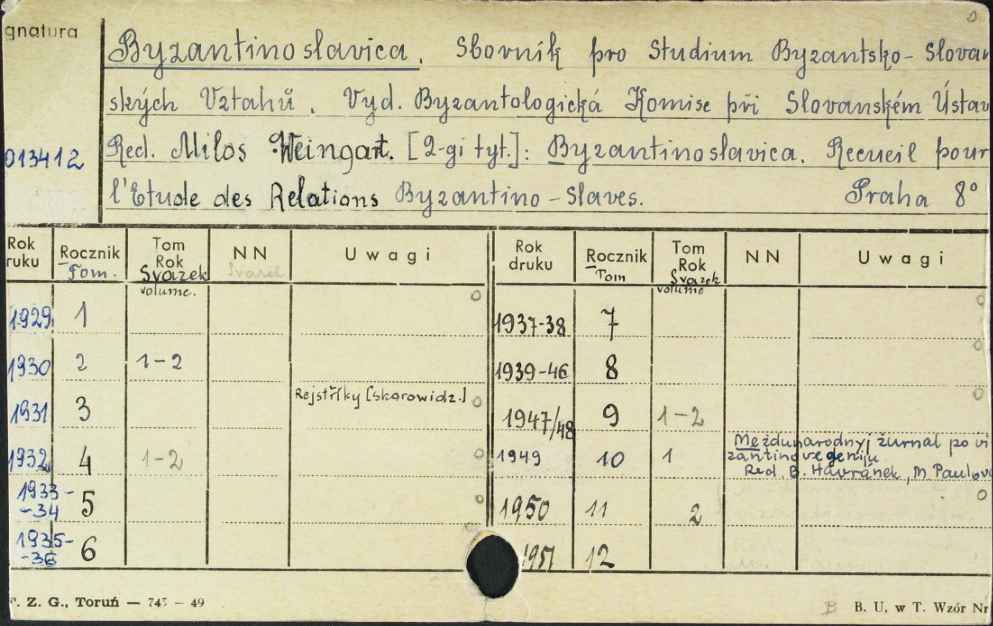 gnatura
Byzantinoslavica. Sborník pro Studium Byzantsko-Slovan
ských Vztahů. Vyd. Byzantologická Komise při Slovanském Ústav
013412 Red. Milos Weingart. [2-gi tyt.]: Byzantinoslavica. Recueil pour
l'Etude des Relations Byzantino-Slaves. Praha 8°
Rok ruku Rocznik Tom. Tom Rok Svazek volume. NN Svazek Uwagi Rok druku Rocznik Tom Tom Rok Svazek volume NN Uwagi
1929 1 1937-38 7
1930 2 1-2 1939-46 8
1931 3 Rejstříky [skorowidz.] 1947/48 9 1-2
1932 4 1-2 1949 10 1 Meždunarodnyj žurnal po vi
zantinovedeniju
Red. B. Havránek, M. Paulov
1933-
-34 5 1950 11 2
1935-
-36 6 1951 12
Z. G., Toruń — 745 — 49 B B. U. w T. Wzór Nr